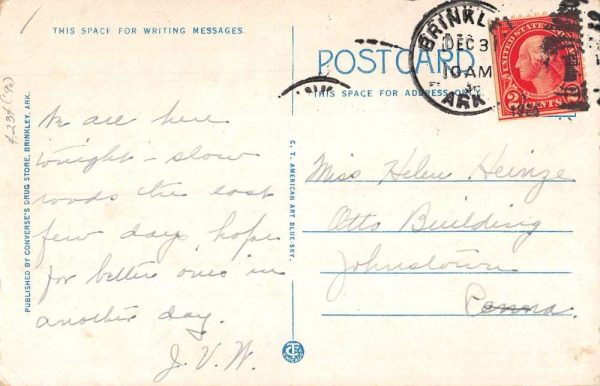 THIS SPACE FOR WRITING MESSAGES.
POSTCARD
THIS SPACE FOR ADDRESS ONLY.
BRINKLEY
DEC 3
10 AM
ARK
UNITED STATES
2 CENTS 2
PUBLISHED BY CONVERSE'S DRUG STORE, BRINKLEY, ARK.
C. T. AMERICAN ART BLUE-SKY.
We are here
tonight - slow
roads the last
few days, hope
for better ones in
another day.
J. V. W.
Miss Helen Heinze
Otto Building
Johnstown
Penna.